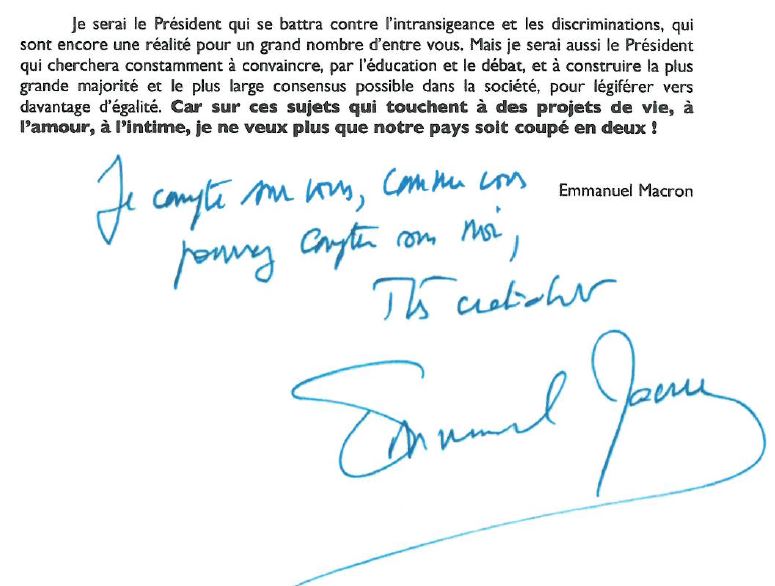 Je serai le Président qui se battra contre l'intransigeance et les discriminations, qui
sont encore une réalité pour un grand nombre d'entre vous. Mais je serai aussi le Président
qui cherchera constamment à convaincre, par l'éducation et le débat, et à construire la plus
grande majorité et le plus large consensus possible dans la société, pour légiférer vers
davantage d'égalité. Car sur ces sujets qui touchent à des projets de vie, à
l'amour, à l'intime, je ne veux plus que notre pays soit coupé en deux !
Emmanuel Macron
Je compte sur vous, comme vous
pouvez compter sur moi,
Très cordialement
Emmanuel Macron